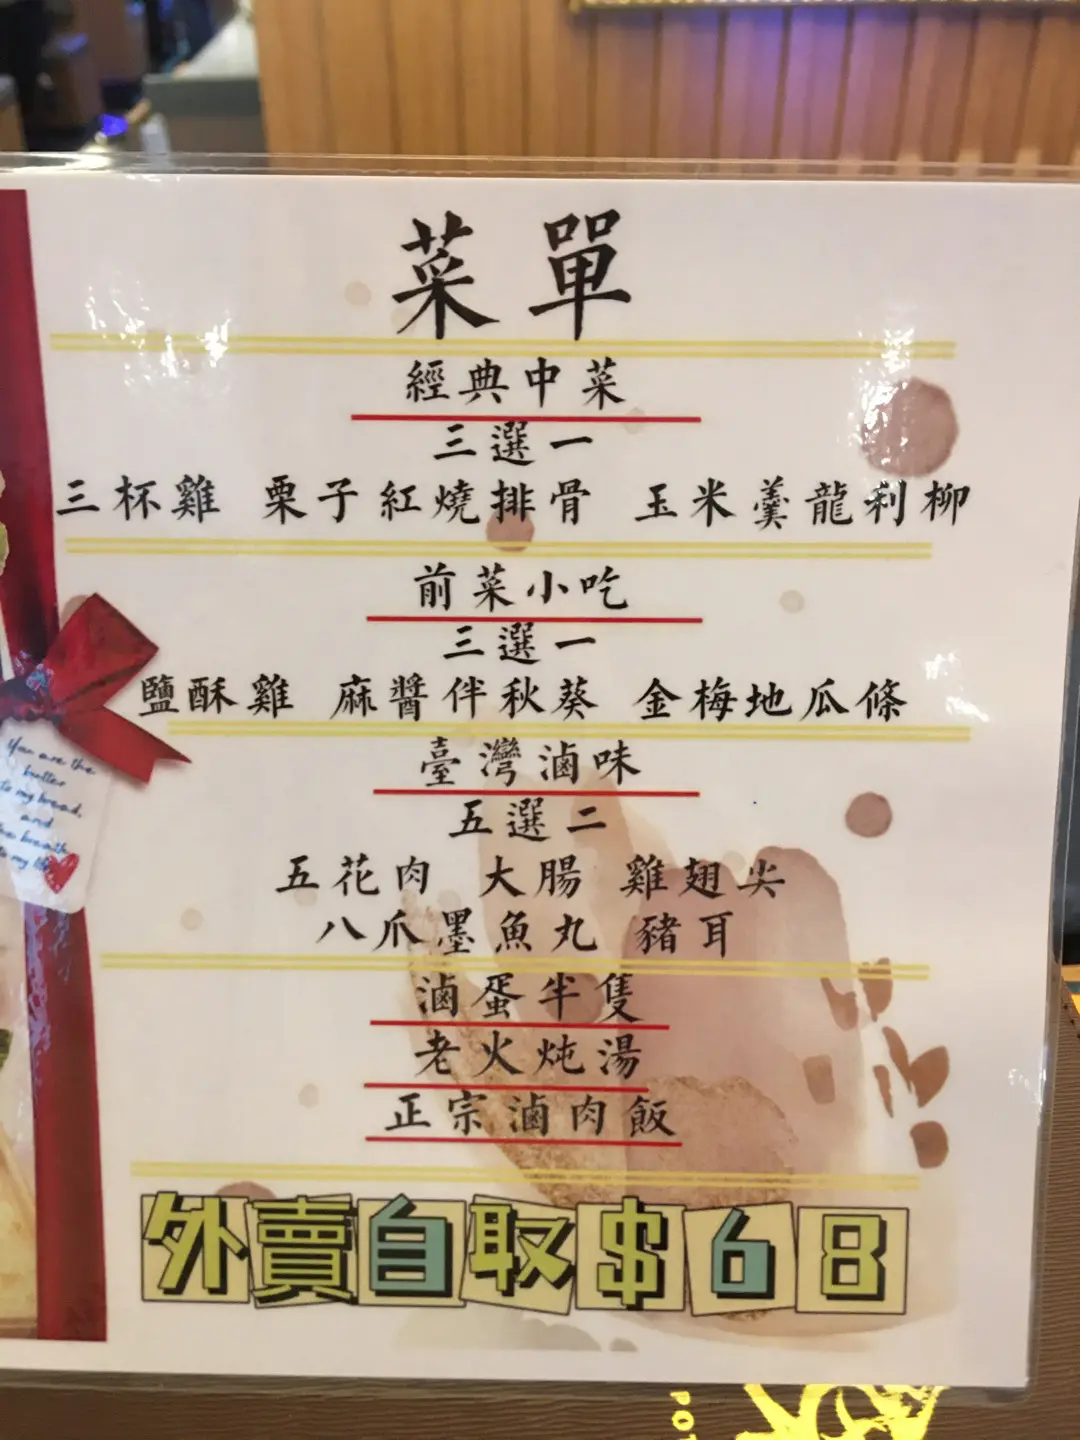 菜單
經典中菜
三選一
三杯雞 栗子紅燒排骨 玉米羹龍利柳
前菜小吃
三選一
鹽酥雞 麻醬伴秋葵 金梅地瓜條
臺灣滷味
五選二
五花肉 大腸 雞翅尖
八爪墨魚丸 豬耳
滷蛋半隻
老火炖湯
正宗滷肉飯
外賣自取$68
You are the
butter
to my bread,
and
the breath
to my life